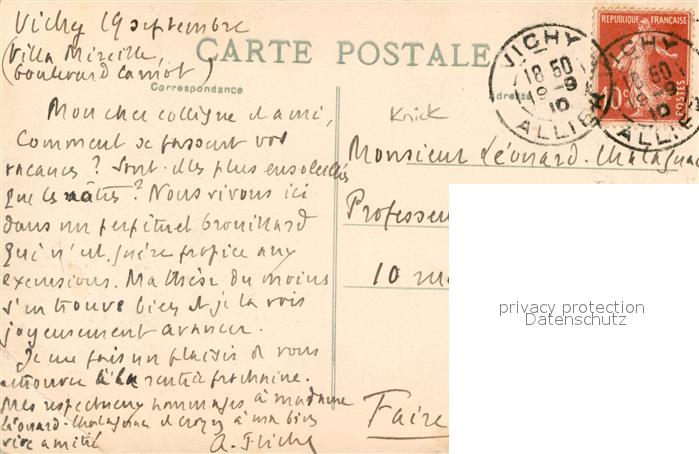 Vichy 19 septembre
(Villa Mireille,
boulevard Carnot)
CARTE POSTALE
Correspondance
Adresse
Knick
REPUBLIQUE FRANÇAISE
10 c
POSTES
VICHY
18 50
9-9
10
ALLIER
VICHY
18 50
9-9
10
ALLIER
Mon cher collègue et ami,
Comment se passent vos
vacances ? Sont-elles plus ensoleillées
que les nôtres ? Nous vivons ici
dans un perpétuel brouillard
qui n'est guère propice aux
excursions. Ma thèse du moins
s'en trouve bien et je la vois
joyeusement avancer.
Je me fais un plaisir de vous
retrouver à la rentrée prochaine.
Mes respectueux hommages à madame
Léonard-Chalagnac et croyez à ma bien
vive amitié
A. Fliche
Monsieur Léonard-Chalagnac
Professeu
10 ru
Faire
privacy protection
Datenschutz